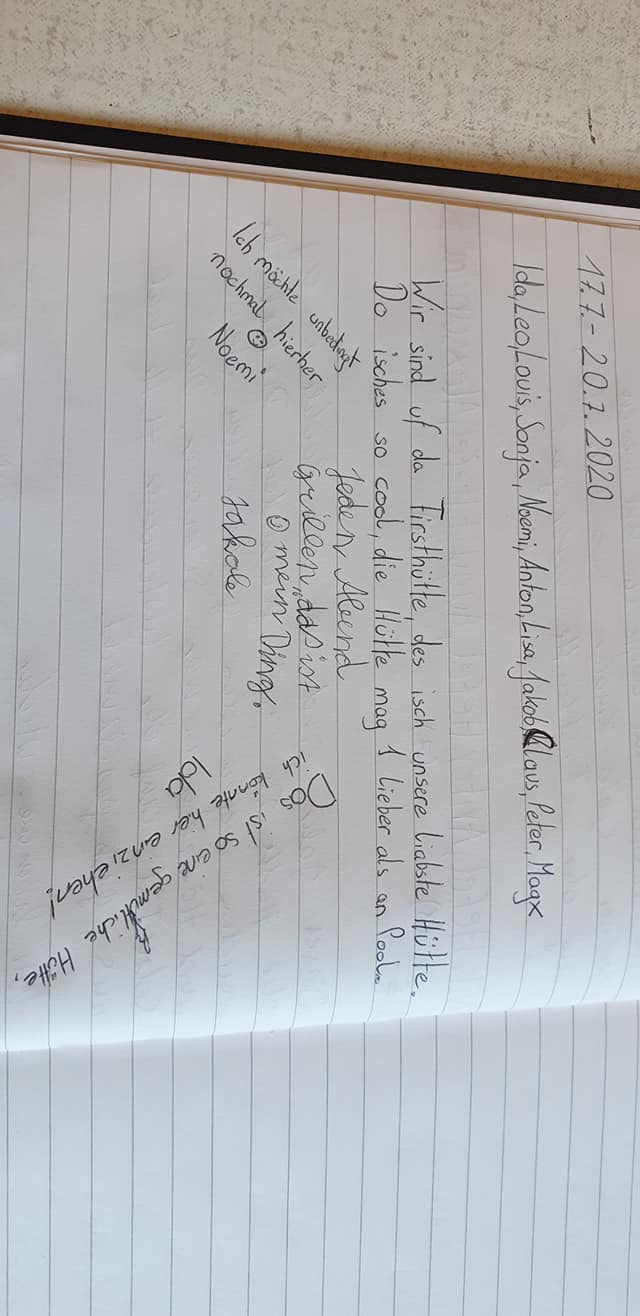 17.7. - 20.7.2020
Ida, Leo, Louis, Sonja, Noemi, Anton, Lisa, Jakob, Claus, Peter, Magx
Wir sind uf da Firsthütte, des isch unsere liabste Hütte.
Do isches so cool, die Hütte mag I lieber als an Pool.
Ich möchte unbedingt
nochmal hierher
☺. Noemi
Jeden Abend
Grillen, das ist
mein Ding.
Jakob
Das ist so eine gemütliche Hütte,
ich könnte hier einziehen!
Ida